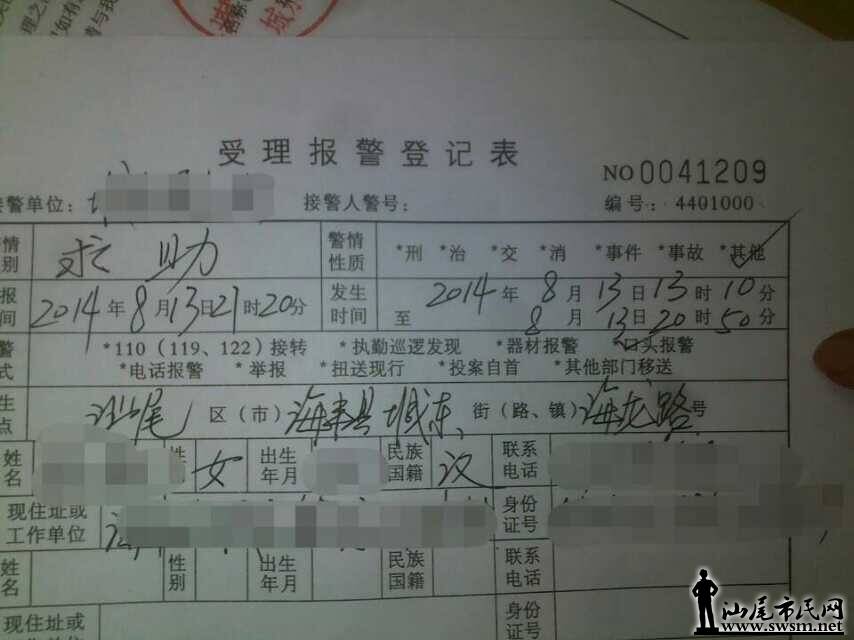 受理报警登记表
NO 0041209
接警单位: 接警人警号: 编号: 4401000
情别 求助 警情性质 *刑 *治 *交 *消 *事件 *事故 *其他
报间 2014年8月13日21时20分 发生时间 2014年8月13日13时10分
至 8月13日20时50分
警式 *110（119、122）接转 *执勤巡逻发现 *器材报警 口头报警
*电话报警 *举报 *扭送现行 *投案自首 *其他部门移送
生点 汕尾 区（市） 海丰县城东 街（路、镇） 海龙路 号
姓名 性 女 出生年月 民族国籍 汉 联系电话
现住址或工作单位 身份证号
姓名 性别 出生年月 民族国籍 联系电话
现住址或 身份证号
汕尾市民网
www.swsm.net